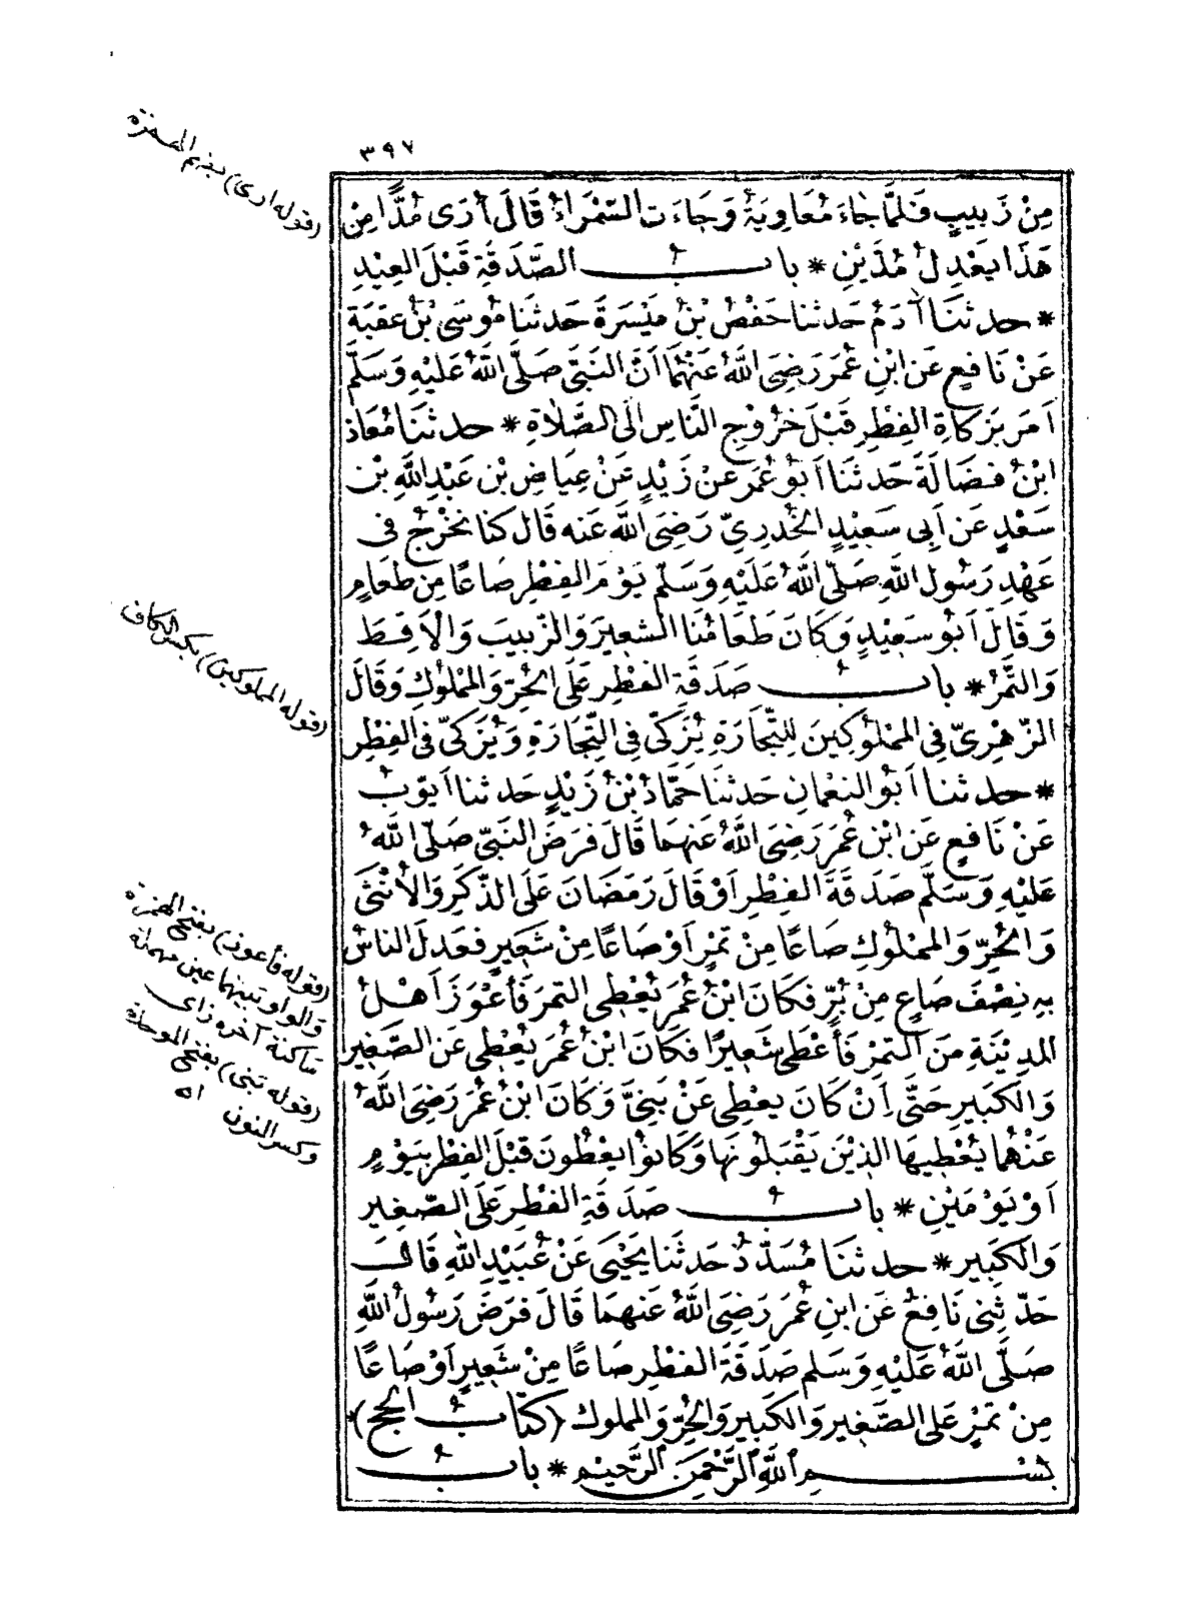 ٣٩٧
مِنْ زَبِيبٍ فَلَمَّا جَاءَ مُعَاوِيَةُ وَجَاءَتِ السَّمْرَاءُ قَالَ أُرَى مُدًّا مِنْ
هَذَا يَعْدِلُ مُدَّيْنِ * بَابُ الصَّدَقَةِ قَبْلَ العِيْدِ
* حدثنَا آدَمُ حَدثنا حَفْصُ بْنُ مَيْسَرَةَ حَدثنَا مُوسَى بْنُ عقبَةَ
عَنْ نَافِعٍ عَنِ ابْنِ عُمَرَ رَضِيَ اللَّهُ عَنْهُمَا أَنَّ النَّبِيَّ صَلَّى اللَّهُ عَلَيْهِ وَسَلَّمَ
أَمَرَ بِزَكَاةِ الفِطْرِ قَبْلَ خُرُوْجِ النَّاسِ إلَى الصَّلَاةِ * حدثنَا مُعَاذُ
ابْنُ فَضَالَةَ حَدثنَا أَبُو عُمَرَ عَنْ زَيْدٍ عَنْ عِيَاضِ بْنِ عَبْدِ اللَّهِ بْنِ
سَعْدٍ عَنْ أَبِي سَعِيْدٍ الخُدرِيّ رَضِيَ اللَّه عَنه قَال كنا نخْرْجُ في
عَهْدِ رَسُولِ اللَّهِ صَلَّى اللَّهُ عَلَيْهِ وَسَلَّمَ يَوْمَ الفِطْرِ صَاعًا مِنْ طَعَامٍ
وَقَالَ أَبُو سَعِيْدٍ وَكَانَ طَعَامُنَا الشَّعِيْرَ وَالزَّبِيبَ وَالْأَقِطَ
وَالتَّمْرُ * بَابُ صَدَقَةِ الفِطْرِ عَلَى الحُرِّ وَالمَمْلُوْكِ وَقَالَ
الزُّهْرِيّ فِي المَمْلُوْكِينَ لِلتِّجَارَةِ يُزَكّى فِي التِّجَارَةِ وَيُزَكّى في الفِطْرِ
* حدثنا أَبُو النعْمَانِ حَدثنَا حَمَّادُ بْنُ زَيْدٍ حَدثنا أَيّوْبُ
عَنْ نَافِعٍ عَنِ ابْنِ عُمَرَ رَضِيَ اللَّهُ عَنهمَا قَالَ فَرَضَ النَّبِيّ صَلَّى اللَّهُ
عَلَيْهِ وَسَلَّمَ صَدَقَةَ الفِطْرِ أَوْ قَالَ رَمَضَانَ عَلَى الذَّكَرِ وَالأُنْثَى
وَالحُرِّ وَالمَمْلُوكِ صَاعًا مِنْ تَمْرٍ أَوْ صَاعًا مِنْ شَعِيرٍ فَعَدلَ الناسُ
بِهِ نِصْفَ صَاعٍ مِنْ بُرٍّ فكَانَ ابْنُ عُمَرَ يُعْطِي التمرَ فَأَعْوَزَ أَهْلُ
المدِيْنَةِ مِنَ التَّمْرِ فَأَعْطَى شَعِيرًا فكَانَ ابْنُ عُمَرَ يُعْطِي عَنِ الصَّغِيْرِ
وَالكَبِيرِ حَتَّى إِنْ كَانَ يعْطِي عَنْ بَنِيَّ وَكَانَ ابْنُ عُمَرَ رَضِيَ اللَّهُ
عَنْهُمَا يُعْطِيهَا الذِيْنَ يَقْبَلُوْنَهَا وَكَانُوْا يعْطُونَ قَبْلَ الفِطْرِ بِيَوْمٍ
أَوْ يَوْمَيْنِ * بَابُ صَدَقَةِ الفِطْرِ عَلَى الصَّغِيرِ
وَالكَبِيرِ * حدثنَا مُسَدَّدٌ حَدثنَا يَحْيَى عَنْ عُبَيْدِ اللَّهِ قَالَ
حَدّثنِي نَافِعٌ عَنِ ابْنِ عُمَرَ رَضِيَ اللَّهُ عَنهمَا قَالَ فَرَضَ رَسُولُ اللَّهِ
صَلَّى اللَّهُ عَلَيْهِ وَسَلم صَدَقَةَ الفِطْرِ صَاعًا مِنْ شَعِيرٍ أَوْ صَاعًا
مِنْ تمْرٍ عَلَى الصَّغِيرِ وَالكَبِيرِ وَالحُرِّ وَالمملوك (كِتَابُ الحَجِّ)
بِسْمِ اللَّهِ الرَّحْمَنِ الرَّحِيمِ * بَابُ
(قوله أرى) بضم الهمزة
(قوله المملوكين) بكسر الكاف
(قوله فأعوز) بفتح الهمزة
والواو بينهما عين مهملة
ساكنة آخره زاى
(قوله بني) بفتح الموحدة
وكسر النون اه